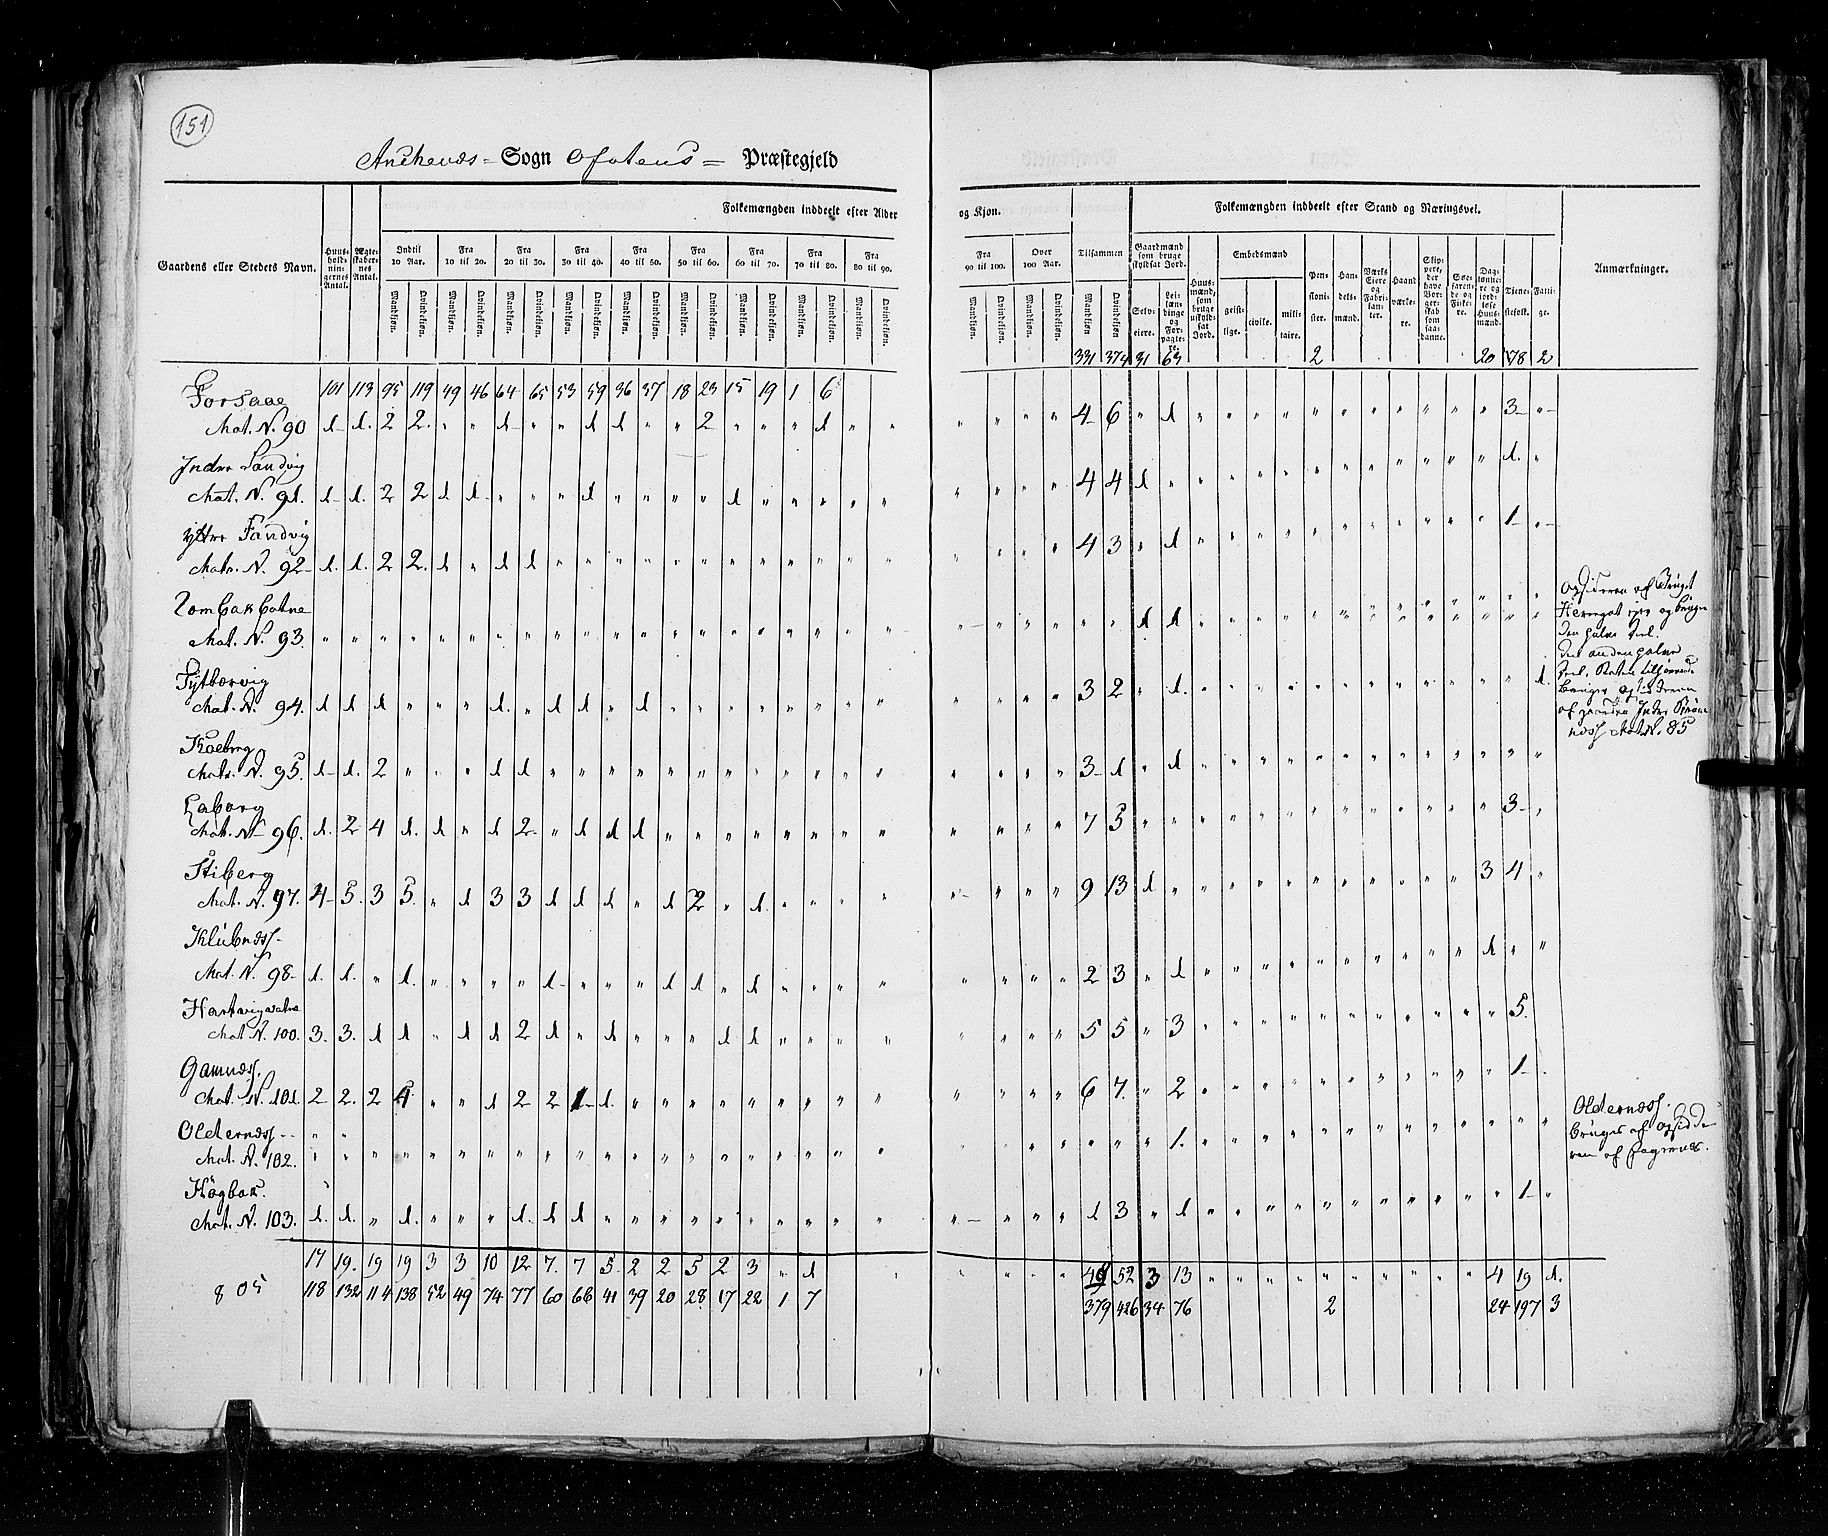 151
Anckenæs = Sogn Ofotens = Præstegjeld
Folkemængden inddeelt efter Alder og Kjøn. Folkemængden inddeelt efter Stand og Næringsvei.
Gaardens eller Stedets Navn. Huusholdningernes Antal. Ægteskabernes Antal. Indtil 10 Aar. Fra 10 til 20. Fra 20 til 30. Fra 30 til 40. Fra 40 til 50. Fra 50 til 60. Fra 60 til 70. Fra 70 til 80. Fra 80 til 90. Fra 90 til 100. Over 100 Aar. Tilsammen Gaardmænd som bruge skyldsat Jord. Huusmænd, som bruge uskyldsat Jord. Embedsmænd Pensionister. Handelsmænd. Værks Eiere og Fabrikanter. Haandværkere. Skippere, der have Borgerskab som saadanne. Søefarende og Fiskere. Daglønnere og jordløse Huusmænd. Tjenestefolk. Fattige. Anmærkninger.
Mandkjøn. Qvindekjøn. Mandkjøn. Qvindekjøn. Mandkjøn. Qvindekjøn. Mandkjøn. Qvindekjøn. Mandkjøn. Qvindekjøn. Mandkjøn. Qvindekjøn. Mandkjøn. Qvindekjøn. Mandkjøn. Qvindekjøn. Mandkjøn. Qvindekjøn. Mandkjøn. Qvindekjøn. Mandkjøn. Qvindekjøn. Mandkjøn Qvindekjøn Selveiere. Leilændinge og Forpagtere. geistlige. civile. militaire.
331 374 31 63 2 20 178 2
Forsaae 101 113 95 119 49 46 64 65 53 59 36 37 18 23 15 19 1 6
Mat. N. 90 1 1. 2 2. " " 1 " " 1 1 " " 2 " " " 1 " " " " " " 4 6 " 1 " " " " " " " " " " " 3 "
Indre Sandvig
Mat. N. 91. 1 1. 2 2 1 1 " " " 1 " " " " 1 " " " " " " " " " 4 4 1 " " " " " " " " " " " " 1. "
Yttre Sandvig
Matr. N. 92 1. 1. 2 2. 1 " 1 1 " " " " " " " " " " " " " " " " 4 3 " 1 " " " " " " " " " " " 1 "
Mat. N. 93. " " " " " " " " " " " " " " " " " " " " " " " " " " 1 1 " " " " " " " " " " " " "
Mat. N. 94. 1 1 1 " " " 1. " 1 1 " 1 " " " " " " " " " " " " 3 2 " 1. " " " " " " " " " " " " 1.
Matr. N. 95. 1 1. 2 " " " 1 1 " " " " " " " " " " " " " " " " 3 1 " 1 " " " " " " " " " " " " "
Laberg
Mat. N. 96. 1. 2 4 1. 1 " 1 2 " 1 1 1 " " " " " " " " " " " " 7 5 " " " " " " " " " " " " " 3 "
Stiberg
Mat. N. 97. 4 5. 3 5. " 1 3 3 1 1 1 " 1 2 " 1. " " " " " " " " 9 13 1 " " " " " " " " " " " 3 4 "
Klubnæss
Mat. N. 98 1. 1. " 1. " " " " 1 " " " 1 1 " 1 " " " " " " " " 2 3 " 1 " " " " " " " " " " 1 " "
Hartvigvatne
Mat. N. 100. 3. 3. 1 1 " 1 1 2 1 " 1 " " " 1 1 " " " " " " " " 5 5 " 3 " " " " " " " " " " " 5.
Mat. N. 101. 2 2. 2 4 " " 1 2 2 1 1. " " " " " " " " " " " " " 6 7. " 2 " " " " " " " " " " " 1
Oldernæss
Mat. N. 102. " " " " " " " " " " " " " " " " " " " " " " " " " " " 1. " " " " " " " " " " " " "
Mat. N. 103. 1. 1. " 1. " " " 1. 1 1 " " " " " " " " " " " " " " 1 3 " 1 " " " " " " " " " " " 1 "
17 19. 19 19 3 3 10 12 7. 7 5 2 2 5 2 3 " 1 48 52 3 13 4 19 1.
805 118 132 114 138 52 49 74 77 60 66 41 39 20 28 17 22 1 7 379 426 34 76 2 24 197 3
den halve Deel.
Mat. N. 85
Oldernæss.
bruges af Opsidde
ren af